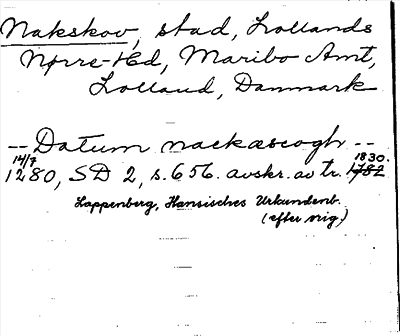 Nakskov, stad, Lollands
Nørre-Hd, Maribo Amt,
Lolland, Danmark
-- Datum nackascogh --
14/7 1830.
1280, SD 2, s. 656. avskr. av tr. 1782
Lappenberg, Hansisches Urkundenb.
(efter orig.)